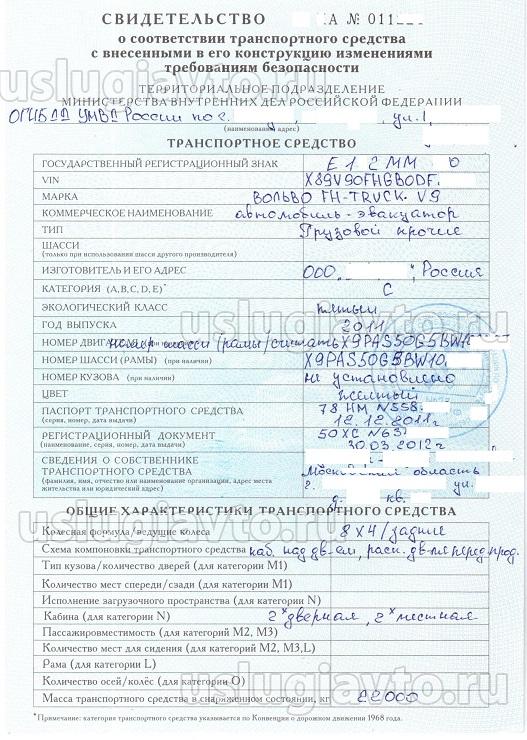 СВИДЕТЕЛЬСТВО КА № 011
о соответствии транспортного средства
с внесенными в его конструкцию изменениями
требованиям безопасности
uslugiavto.ru
ТЕРРИТОРИАЛЬНОЕ ПОДРАЗДЕЛЕНИЕ
МИНИСТЕРСТВА ВНУТРЕННИХ ДЕЛ РОССИЙСКОЙ ФЕДЕРАЦИИ
УМВД России по г. ул.
(наименование, адрес)
ТРАНСПОРТНОЕ СРЕДСТВО
ГОСУДАРСТВЕННЫЙ РЕГИСТРАЦИОННЫЙ ЗНАК Е1 2ММ 0
VIN X89V90FHGB0DF
МАРКА ВОЛЬВО FH-TRUCK V9
КОММЕРЧЕСКОЕ НАИМЕНОВАНИЕ автомобиль-эвакуатор
ТИП Грузовой прочие
ШАССИ
(только при использования шасси другого производителя)
ИЗГОТОВИТЕЛЬ И ЕГО АДРЕС ООО , Россия
КАТЕГОРИЯ (A,B,C,D,E)* С
ЭКОЛОГИЧЕСКИЙ КЛАСС пятый
ГОД ВЫПУСКА 2011
НОМЕР ДВИГАТЕЛЯ номер шасси (рамы) считать X9PAS50G5BW1
НОМЕР ШАССИ (РАМЫ) (при наличии) X9PAS50G5BW10
НОМЕР КУЗОВА (при наличии) не установлено
ЦВЕТ желтый
ПАСПОРТ ТРАНСПОРТНОГО СРЕДСТВА 78 НМ N558
(серия, номер, дата выдачи) 12.12.2011г
РЕГИСТРАЦИОННЫЙ ДОКУМЕНТ 50ХС N63
(наименование, серия, номер, дата выдачи) 30.03.2012г
СВЕДЕНИЯ О СОБСТВЕННИКЕ
ТРАНСПОРТНОГО СРЕДСТВА Московская область
(фамилия, имя, отчество или наименование организации, адрес места г. ул.
жительства или юридический адрес) д. кв.
ОБЩИЕ ХАРАКТЕРИСТИКИ ТРАНСПОРТНОГО СРЕДСТВА
uslugiavto.ru
Колесная формула/ведущие колеса 8x4/задние
Схема компоновки транспортного средства каб. над дв-ем, расп. дв-ля перед. прод.
Тип кузова/количество дверей (для категории М1)
Количество мест спереди/сзади (для категории М1)
Исполнение загрузочного пространства (для категории N)
Кабина (для категории N) 2х дверная, 2х местная
Пассажировместимость (для категорий М2, М3)
Количество мест для сидения (для категорий М2, М3,L)
Рама (для категории L)
Количество осей/колёс (для категории О)
Масса транспортного средства в снаряженном состоянии, кг 22000
uslugiavto.ru
*Примечание: категория транспортного средства указывается по Конвенции о дорожном движении 1968 года.